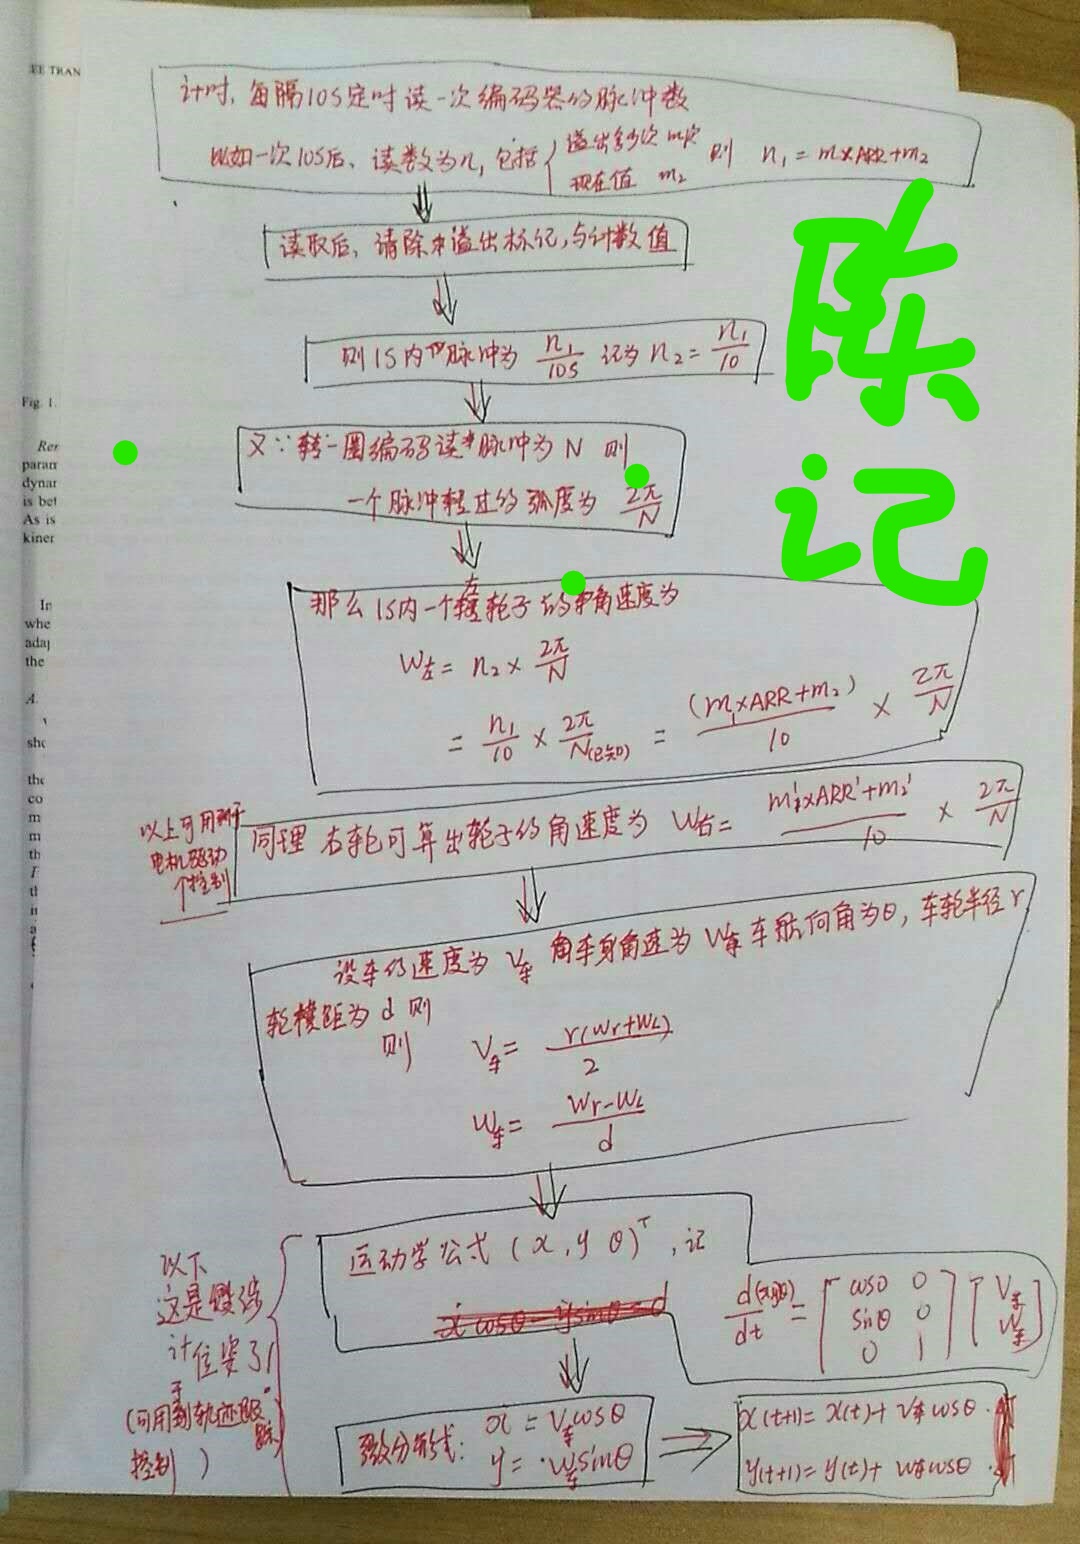 EE TRAN
计时，每隔10S定时读一次编码器的脉冲数
比如一次10S后，读数为n，包括{溢出多少次 m次 则 n₁=m×ARR+m₂
现在值 m₂
读取后，请除溢出标记，与计数值
则1S内脉冲为 n₁/10S 记为 n₂=n₁/10
又∵转一圈编码读脉冲为N 则
一个脉冲转过的弧度为 2π/N
那么1S内一个左轮子的角速度为
W左=n₂×2π/N
=n₁/10×2π/N(已知)=(m₁×ARR+m₂)/10×2π/N
以上可用于
电机驱动
个控制
同理 右轮可算出轮子的角速度为 W右=m₁'×ARR'+m₂'/10×2π/N
设车的速度为V车 车身角速为W车 车航向角为θ，车轮半径r
轮横距为d则
则 V车=r(Wr+WL)/2
W车=Wr-WL/d
运动学公式(x,y θ)ᵀ，记
d(xyθ)/dt=[cosθ 0
sinθ 0
0 1][V车
W车]
以下
这是
计位姿了!
(可用于轨迹跟踪
控制)
微分形式: ẋ=V车cosθ
ẏ=·W车sinθ
x(t+1)=x(t)+V车cosθ·
y(t+1)=y(t)+W车cosθ·
陈
记
Fig. 1.
Rer
paran
dynar
is bet
As is
kiner
In
whe
adaj
the
A.
sho
the
co
m
m
th